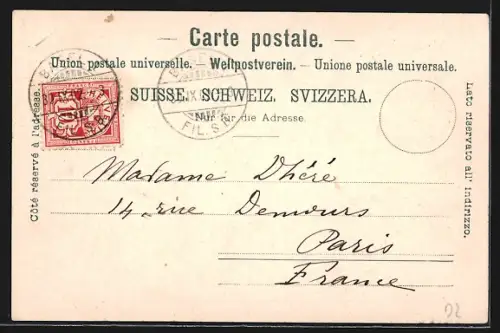 — Carte postale. —
Union postale universelle. — Weltpostverein. — Unione postale universale.
SUISSE. SCHWEIZ. SVIZZERA.
Nur für die Adresse.
Côté réservé à l'adresse.
Lato riservato all' indirizzo.
FIL. ST.
Madame Dhéré
14, rue Demours
Paris
France
D2